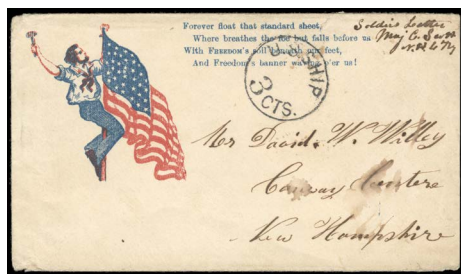 Forever float that standard sheet,
Where breathes the foe but falls before us
With FREEDOM'S soil beneath our feet,
And Freedom's banner waving o'er us!
Soldiers Letter
Maj
SHIP
3
CTS.
Mr David. W. Willey
Conway
New Hampshire